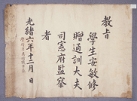 教旨
學生安敏修
贈通訓大夫
司憲府監察
者
光緖六年十二月 日